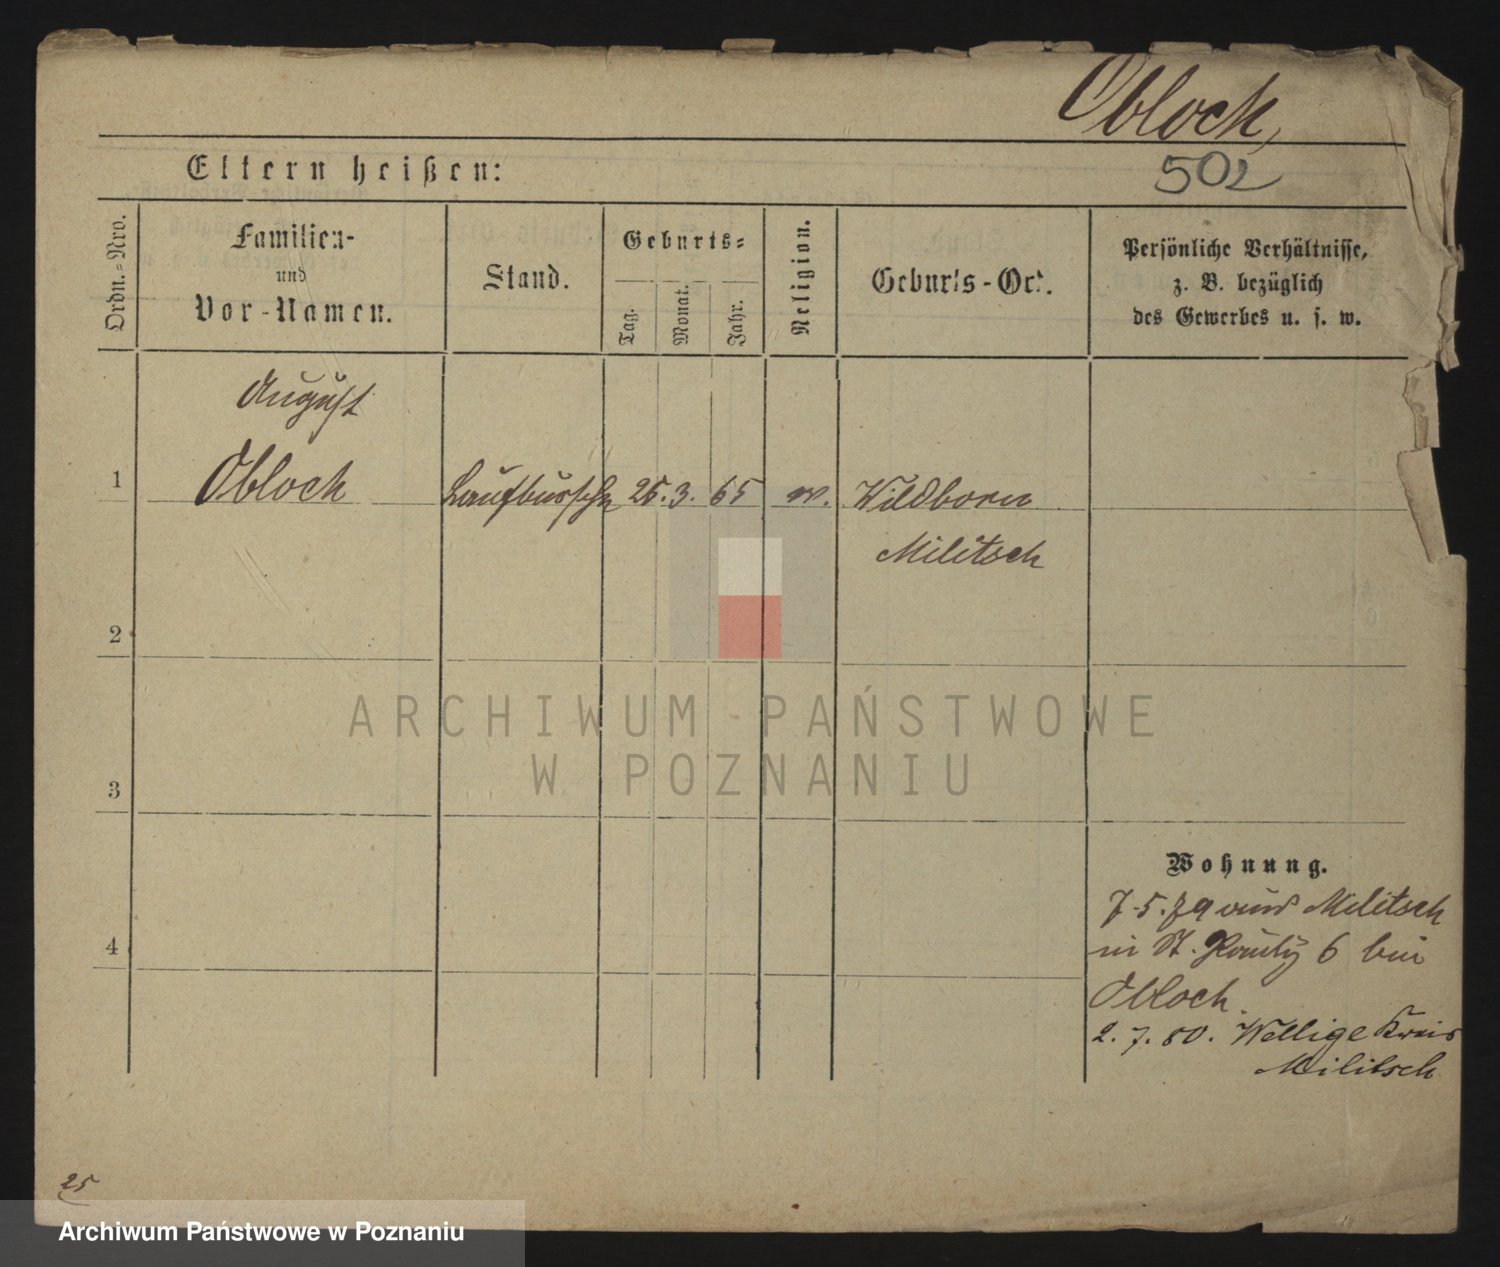 Obloch,
Eltern heißen:
502
Ordn.=Nro.
Familien-
und
Vor-Namen.
Stand.
Geburts=
Tag.
Monat.
Jahr.
Religion.
Geburts-Ort.
Persönliche Verhältnisse,
z. B. bezüglich
des Gewerbes u. s. w.
August
1 Obloch Laufbursche 25. 3. 65 Wildborn
Militsch
2
3
4
Wohnung.
7.5.79 aus Militsch
in St. 6 bei
Obloch.
2. 7. 80. Wellige Kreis
Militsch
25
ARCHIWUM PAŃSTWOWE
W POZNANIU
Archiwum Państwowe w Poznaniu